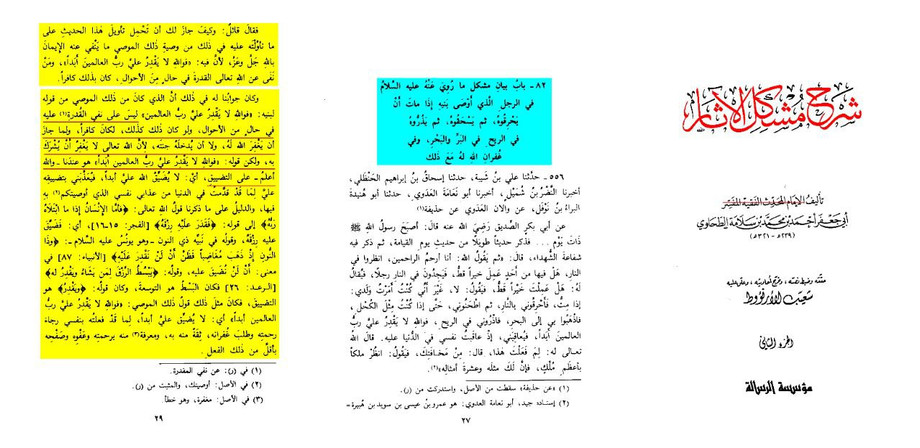 شرح مشكل الآثار
تأليف الإمام المحدث الفقيه المفسر
أبي جعفر أحمد بن محمد بن سلامة الطحاوي
(٢٣٩هـ - ٣٢١هـ)
حققه وضبط نصه، وخرّج أحاديثه، وعلق عليه
شعيب الأرنؤوط
الجزء الثاني
مؤسسة الرسالة
٨٢ - بابُ بيانِ مشكل ما رُوِيَ عَنْهُ عليه السَّلامُ
في الرجل الَّذي أوْصَى بَنِيهِ إذا ماتَ أنْ
يَحْرِقُوهُ، ثم يَسْحَقُوهُ، ثم يَذْرُوهُ
في الرِّيح في البَرِّ والبَحْرِ، وفي
غُفرانِ الله لهُ مَعَ ذلك
٥٥٦ - حدَّثنا علي بنُ شَيبة، حدثنا إسحاقُ بنُ إبراهيم الحَنْظَلي،
أخبرنا النَّضْرُ بنُ شُمَيْل، أخبرنا أبو نَعَامَةَ العَدَوي، حدثنا أبو هُنيدة
البراءُ بنُ نَوْفَل، عن والان العَدَوي عن حذيفة(١)
عن أبي بكر الصديق رَضِيَ الله عنه قال: أصبَحَ رسولُ الله ﷺ
ذاتَ يَوْم ... فذكر حديثاً طويلاً من حديثِ يومِ القيامة، ثم ذكر فيه
شفاعةَ الشُّهداءِ، قال: «ثم يَقُولُ الله: أنا أرحمُ الراحمين، انظُروا في
النار، هَلْ فيها من أحَدٍ عَمِلَ خيراً قطُّ، فيَجِدُونَ في النارِ رجلاً، فيُقالُ
لهُ: هَلْ عَمِلْتَ خيراً قطُّ، فيقولُ: لا، غَيْرَ أنِّي كُنتُ أمَرْتُ ولَدِي:
إذا مِتُّ، فأحْرِقُوني بالنَّارِ، ثم اطْحَنُونِي، حَتَّى إذا كُنْتُ مِثْلَ الكُحْلِ،
فاذْهَبُوا بي إلى البَحرِ، فاذْرُوني في الريح ، فوالله لا يَقْدِرُ عليَّ ربُّ
العالمين أبداً، فيُعاقِبُنِي، إذْ عاقَبْتُ نفسي في الدُّنيا عليه. قالَ الله
تعالى له: لِمَ فَعَلْتَ هذا، قال: مِنْ مَخافَتِكَ، فيَقُولُ: انظُرْ مَلِكاً
بأعظَمِ مُلْكٍ، فإنَّ لَكَ مثله وعشرةَ أمثالِهِ»(٢).
(١) «عن حذيفة» سقطت من الأصل، واستدركت من (ر).
(٢) إسناده جيد، أبو نعامة العدوي: هو عمرو بن عيسى بن سويد بن هبيرة -
٢٧
فقالَ قائلٌ: وكيفَ جازَ لك أن تَحمِلَ تأويلَ هذا الحديثِ على
ما تأوَّلْتَه عليه في ذلك من وصيةِ ذلك الموصي ما يَنْفي عنه الإيمانَ
بالله جَلَّ وعَزَّ، لأنَّ فيه: «فوالله لا يَقْدِرُ عليَّ ربُّ العالمين أبداً»، ومَنْ
نَفَى عن الله تعالى القدرةَ في حالٍ مِنَ الأحوالِ، كان بذلك كافراً.
وكان جوابُنا له في ذلك أنَّ الذي كانَ من ذلك الموصي من قولِه
لبنيه: «فوالله لا يَقْدِرُ عليَّ ربُّ العالمين» ليسَ على نفي القُدرة(١) عليه
في حالٍ من الأحوال، ولو كان ذلك كذلك، لكانَ كافراً، ولَما جازَ
أن يَغْفِرَ الله لَهُ، ولا أن يُدخِلَهُ جنتَه، لأنَّ الله تعالى لا يَغْفِرُ أنْ يُشْرَكَ
به، ولكن قوله: «فوالله لا يَقْدِرُ عليَّ ربُّ العالمين أبداً» هو عندنا - والله
أعلمُ - على التضييقِ، أي: لا يُضيِّقُ الله عليَّ أبداً، فيُعَذِّبَنِي بتضييقِهِ
عليَّ لِمَا قَدْ قدَّمتُ في الدنيا من عذابي نفسي الذي أوصيتُكم(٢) به
فيها، والدليلُ على ما ذكرنا قولُ الله تعالى: ﴿فأمَّا الإنْسَانُ إذا ما ابْتَلاهُ
رَبُّهُ﴾ إلى قوله: ﴿فَقَدَرَ عَلَيْهِ رِزْقَهُ﴾ [الفجر: ١٥-١٦]، أي: فَضَيَّقَ
عليه رِزقَهُ، وقولُه في نَبيِّه ذي النون - وهو يونُس عليه السلام -: ﴿وذَا
النُّونِ إذْ ذَهَبَ مُغَاضِباً فَظَنَّ أنْ لَنْ نَقْدِرَ عَلَيْهِ﴾ [الأنبياء: ٨٧] في
معنى: أنْ لَنْ نُضَيِّقَ عليه، وقوله: ﴿يَبْسُطُ الرِّزْقَ لِمَنْ يَشَاءُ ويَقْدِرُ له﴾
[الرعد: ٢٦] فكان البَسْطُ هو التوسعةَ، وكان قولُه: ﴿ويَقْدِرُ﴾ هو
التضييقَ، فكانَ مثلَ ذلك قولُ ذلك الموصي: «فوالله لا يَقْدِرُ عليَّ ربُّ
العالمين أبداً» أي: لا يُضَيِّقُ عليَّ أبداً، لما قد فعلتُه بنفسي رجاءَ
رحمتِه وطلبَ غُفرانه، ثِقَةً منه به، ومعرفة(٣) منه برحمته وعفوِه وصفحِه
بأقلَّ من ذلك الفعلِ.
(١) في (ر): عن نفي المقدرة.
(٢) في الأصل: أوصيتك، والمثبت من (ر).
(٣) في الأصل: مغفرة، وهو خطأ.
٢٩